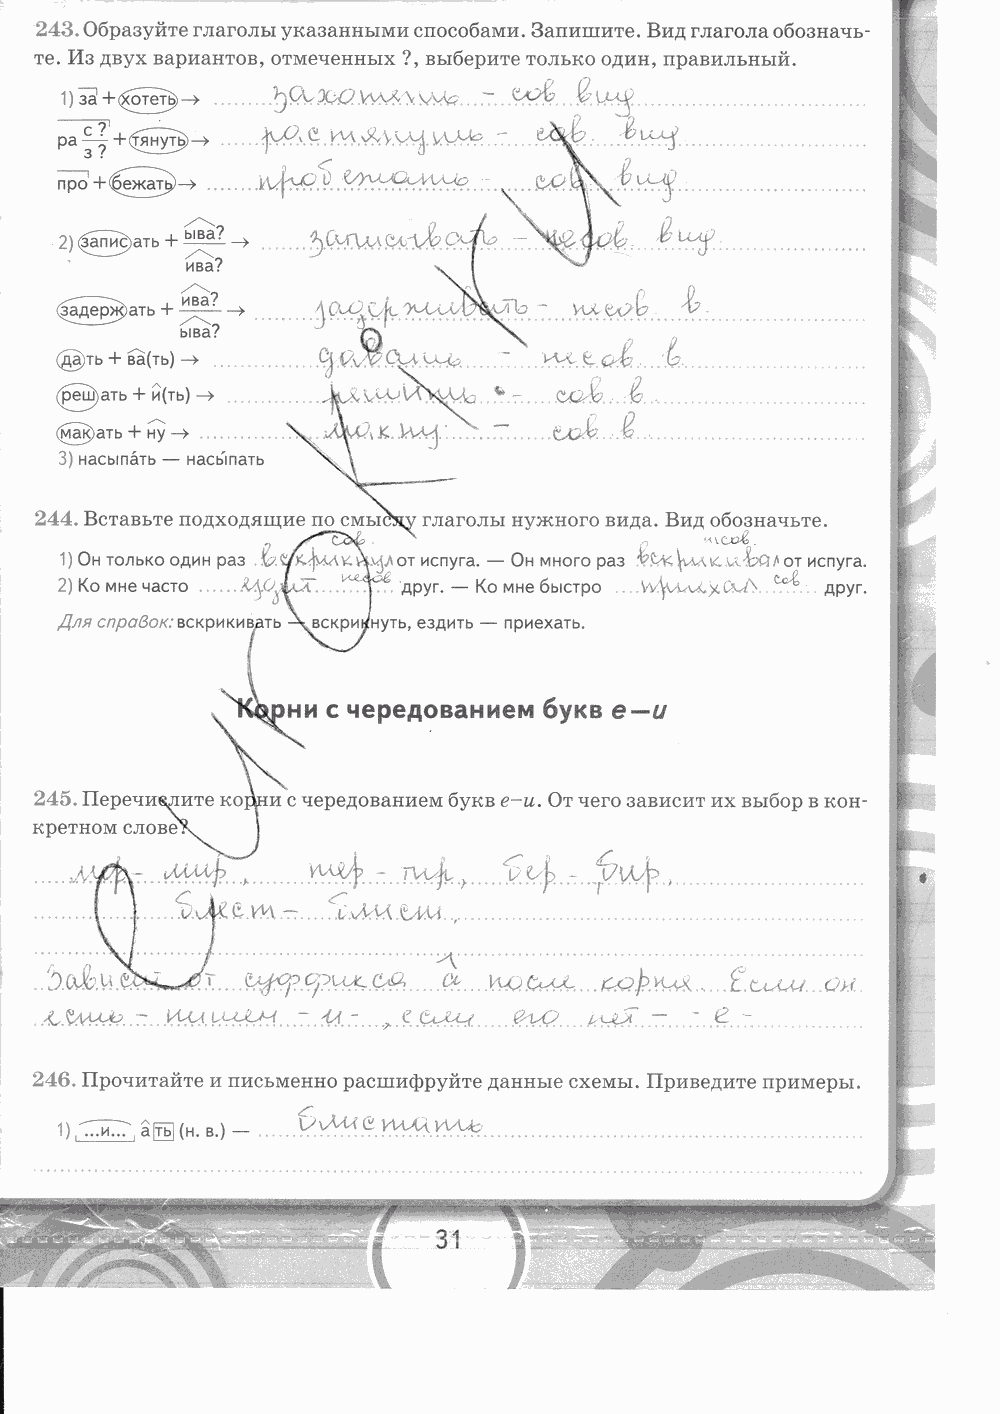 243. Образуйте глаголы указанными способами. Запишите. Вид глагола обозначь-
те. Из двух вариантов, отмеченных ?, выберите только один, правильный.
1) за + хотеть → захотеть - сов вид
ра с ? / з ? + тянуть → растянуть - сов. вид
про + бежать → пробежать - сов вид
2) записать + ыва? / ива? → записывать - несов. вид
задержать + ива? / ыва? → задерживать - несов в.
дать + ва(ть) → давать - несов в
решать + и(ть) → решить - сов в
макать + ну → макну - сов в
3) насыпа́ть — насы́пать
244. Вставьте подходящие по смыслу глаголы нужного вида. Вид обозначьте.
сов. несов.
1) Он только один раз вскрикнул от испуга. — Он много раз вскрикивал от испуга.
2) Ко мне часто ездит несов друг. — Ко мне быстро приехал сов друг.
Для справок: вскрикивать — вскрикнуть, ездить — приехать.
Корни с чередованием букв е—и
245. Перечислите корни с чередованием букв е–и. От чего зависит их выбор в кон-
кретном слове?
мер - мир, тер - тир, бер - бир,
блест - блист,
Зависит от суффикса а после корня. Если он
есть - пишем - и -, если его нет - - е -
246. Прочитайте и письменно расшифруйте данные схемы. Приведите примеры.
1) ...и... а ть (н. в.) — блистать
31